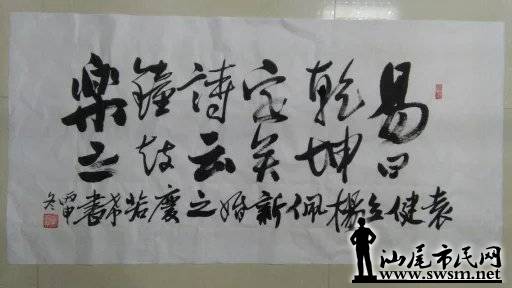 易曰
乾坤
定矣
詩云
鐘鼓
樂之
袁健楊佩新婚之慶若書
丙申
冬
汕尾市民网
www.swsm.net